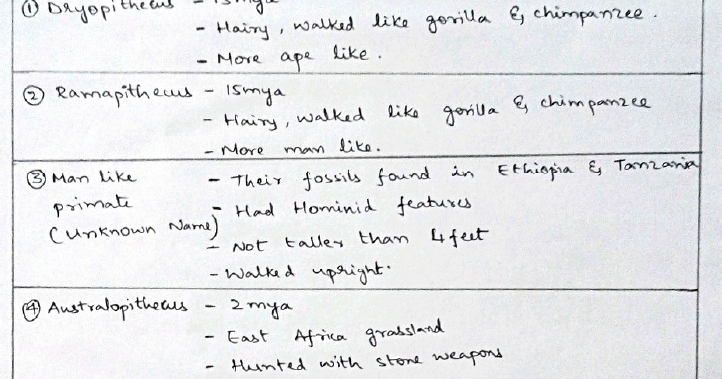 ① Dryopithecus - 15mya
- Hairy, walked like gorilla & chimpanzee.
- More ape like.
② Ramapithecus - 15mya
- Hairy, walked like gorilla & chimpanzee
- More man like.
③ Man like - Their fossils found in Ethiopia & Tanzania
primate - Had Hominid features
(Unknown Name)
- Not taller than 4 feet
- Walked upright.
④ Australopithecus - 2mya
- East Africa grassland
- Hunted with stone weapons